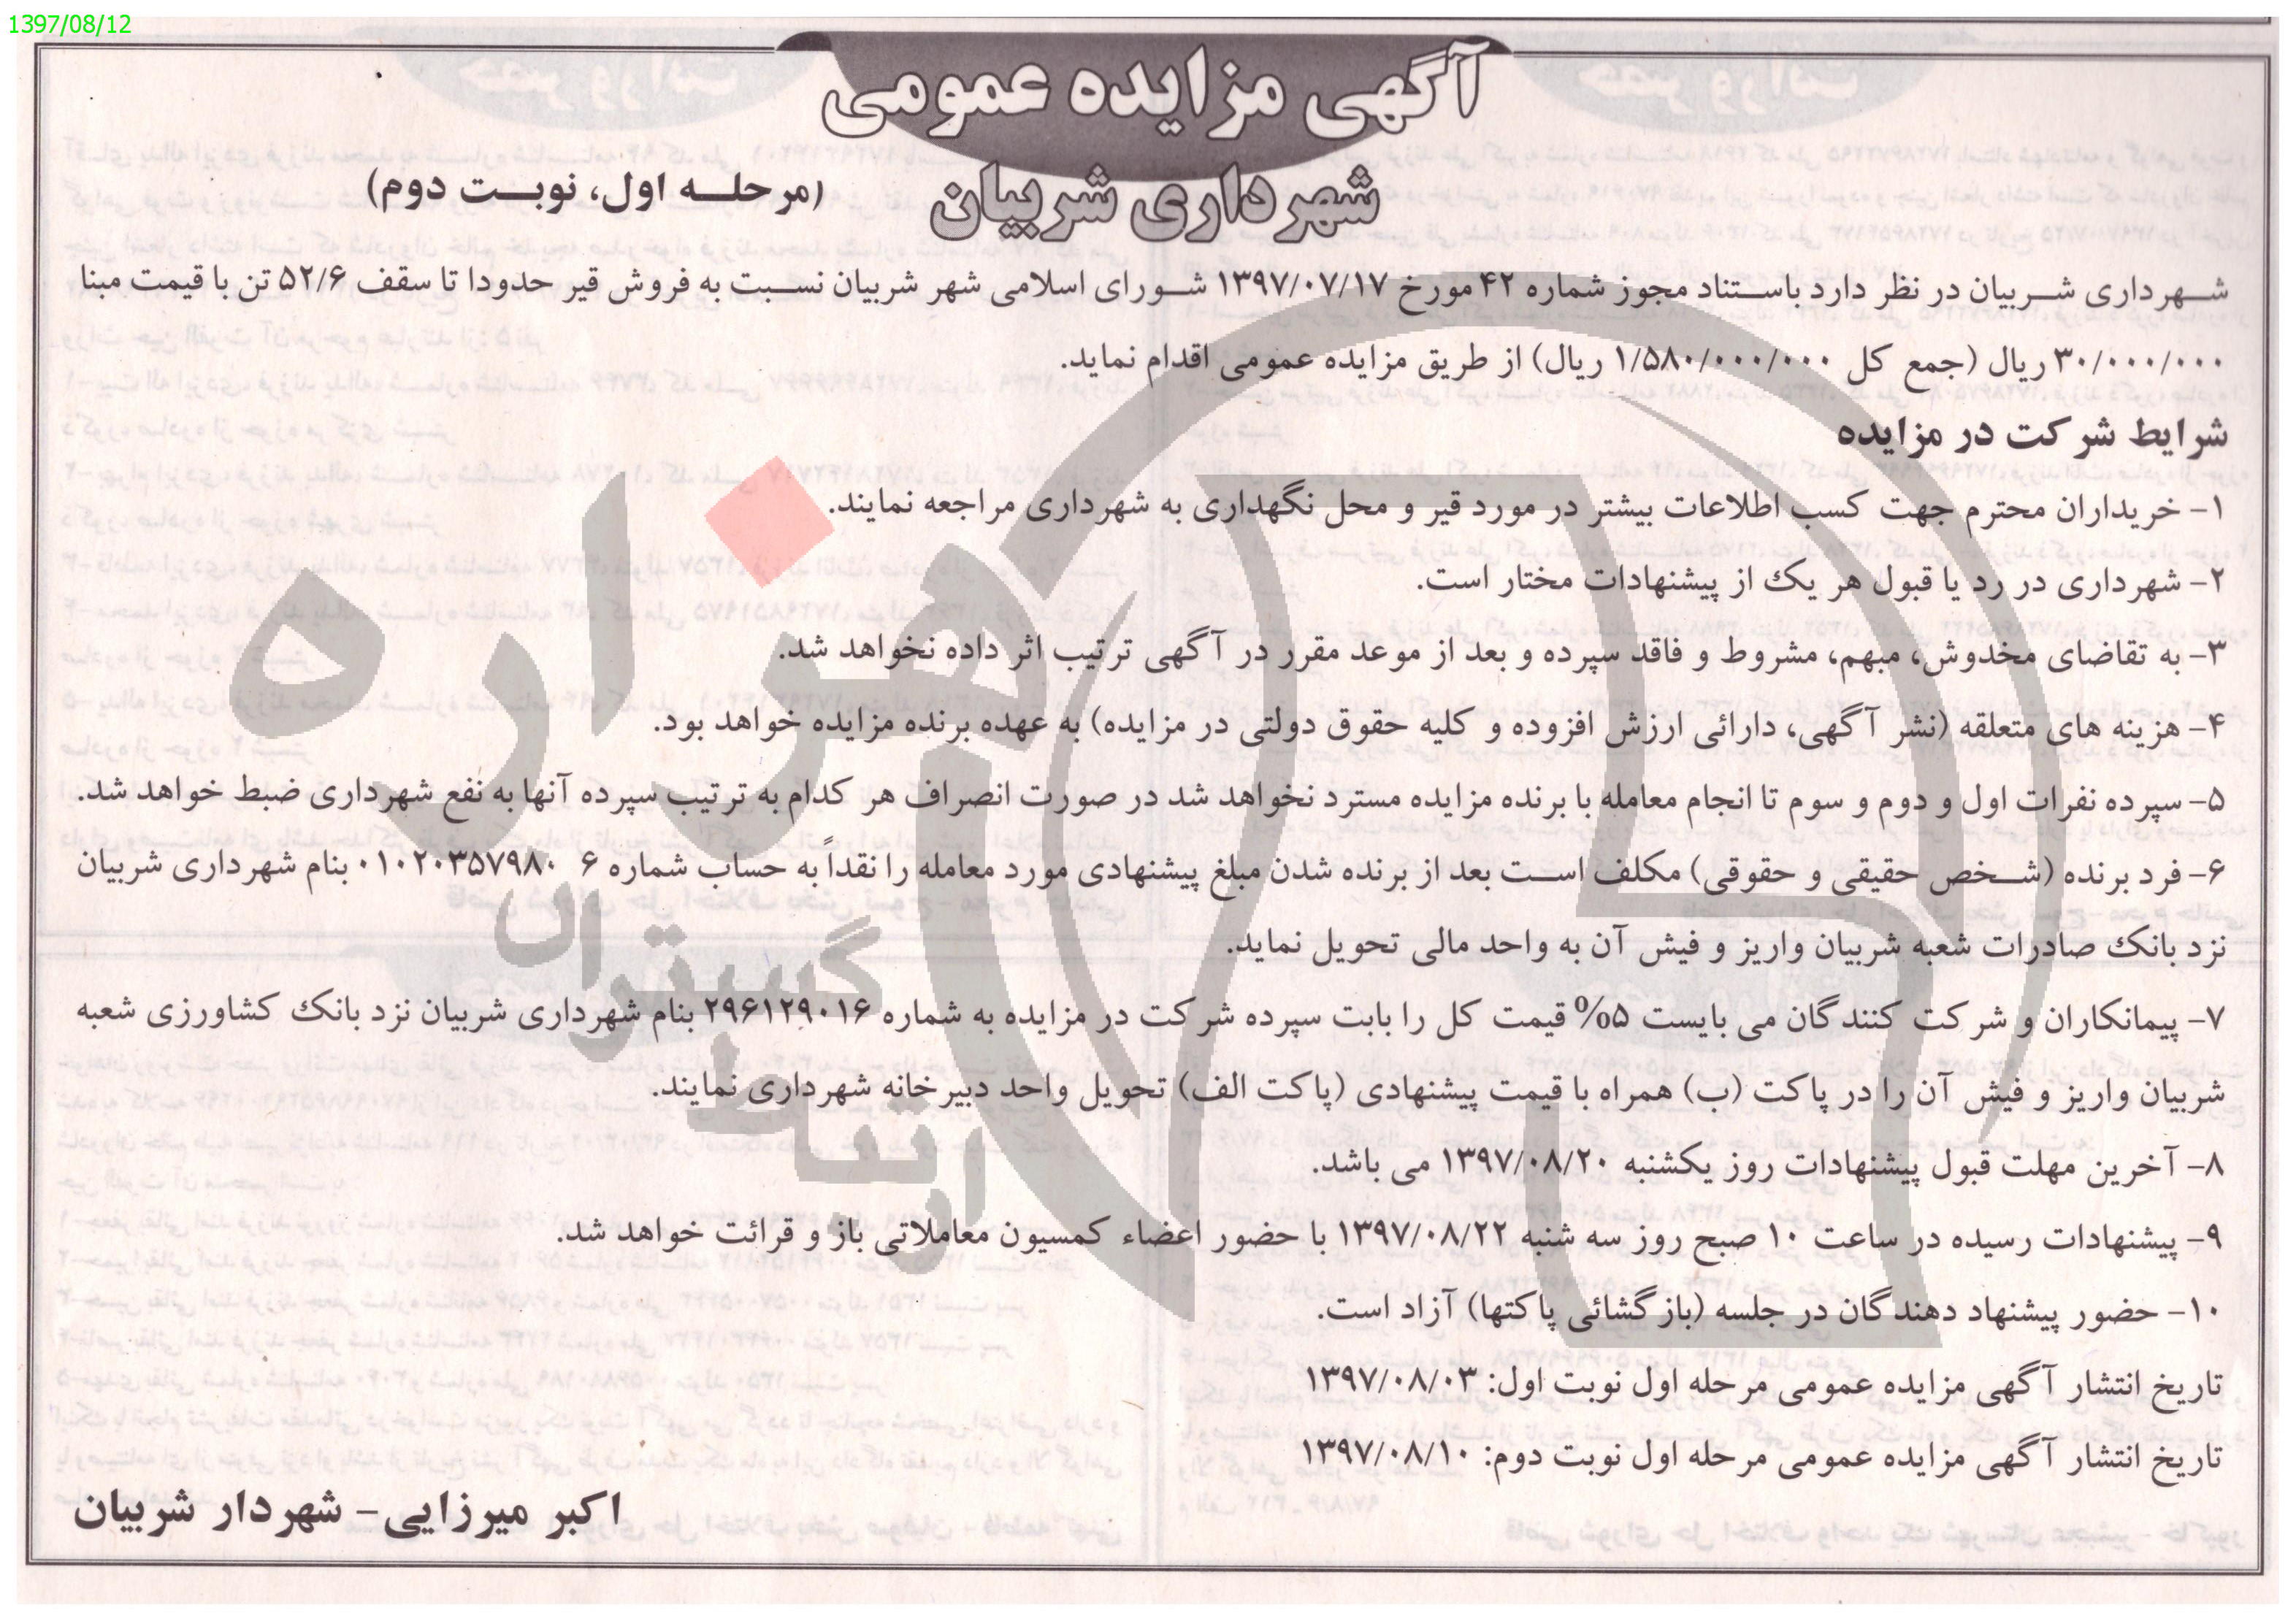 1397/08/12
آگهی مزایده عمومی
شهرداری شربیان
(مرحله اول، نوبت دوم)
شهرداری شربیان در نظر دارد باستناد مجوز شماره ۴۲ مورخ ۱۳۹۷/۰۷/۱۷ شورای اسلامی شهر شربیان نسبت به فروش قیر حدودا تا سقف ۵۲/۶ تن با قیمت مبنا
۳۰/۰۰۰/۰۰۰ ریال (جمع کل ۱/۵۸۰/۰۰۰/۰۰۰ ریال) از طریق مزایده عمومی اقدام نماید.
شرایط شرکت در مزایده
۱- خریداران محترم جهت کسب اطلاعات بیشتر در مورد قیر و محل نگهداری به شهرداری مراجعه نمایند.
۲- شهرداری در رد یا قبول هر یک از پیشنهادات مختار است.
۳- به تقاضای مخدوش، مبهم، مشروط و فاقد سپرده و بعد از موعد مقرر در آگهی ترتیب اثر داده نخواهد شد.
۴- هزینه های متعلقه (نشر آگهی، دارائی ارزش افزوده و کلیه حقوق دولتی در مزایده) به عهده برنده مزایده خواهد بود.
۵- سپرده نفرات اول و دوم و سوم تا انجام معامله با برنده مزایده مسترد نخواهد شد در صورت انصراف هر کدام به ترتیب سپرده آنها به نفع شهرداری ضبط خواهد شد.
۶- فرد برنده (شخص حقیقی و حقوقی) مکلف است بعد از برنده شدن مبلغ پیشنهادی مورد معامله را نقداً به حساب شماره ۶ ۰۱۰۲۰۳۵۷۹۸۰ بنام شهرداری شربیان
نزد بانک صادرات شعبه شربیان واریز و فیش آن به واحد مالی تحویل نماید.
۷- پیمانکاران و شرکت کنندگان می بایست ۵% قیمت کل را بابت سپرده شرکت در مزایده به شماره ۲۹۶۱۲۹۰۱۶ بنام شهرداری شربیان نزد بانک کشاورزی شعبه
شربیان واریز و فیش آن را در پاکت (ب) همراه با قیمت پیشنهادی (پاکت الف) تحویل واحد دبیرخانه شهرداری نمایند.
۸- آخرین مهلت قبول پیشنهادات روز یکشنبه ۱۳۹۷/۰۸/۲۰ می باشد.
۹- پیشنهادات رسیده در ساعت ۱۰ صبح روز سه شنبه ۱۳۹۷/۰۸/۲۲ با حضور اعضاء کمسیون معاملاتی باز و قرائت خواهد شد.
۱۰- حضور پیشنهاد دهندگان در جلسه (بازگشائی پاکتها) آزاد است.
تاریخ انتشار آگهی مزایده عمومی مرحله اول نوبت اول: ۱۳۹۷/۰۸/۰۳
تاریخ انتشار آگهی مزایده عمومی مرحله اول نوبت دوم: ۱۳۹۷/۰۸/۱۰
اکبر میرزایی- شهردار شربیان
هزاره
ارتباط
گستران